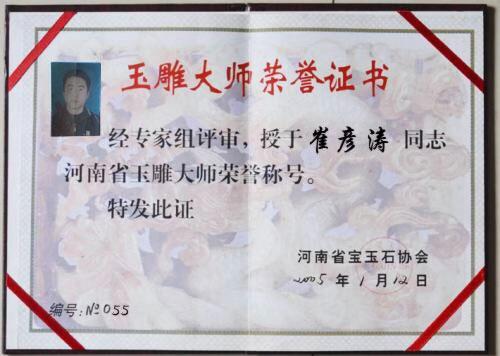 玉雕大师荣誉证书
经专家组评审，授于 崔彦涛 同志
河南省玉雕大师荣誉称号。
特发此证
河南省宝玉石协会
2005 年 1 月 12 日
编号: №055